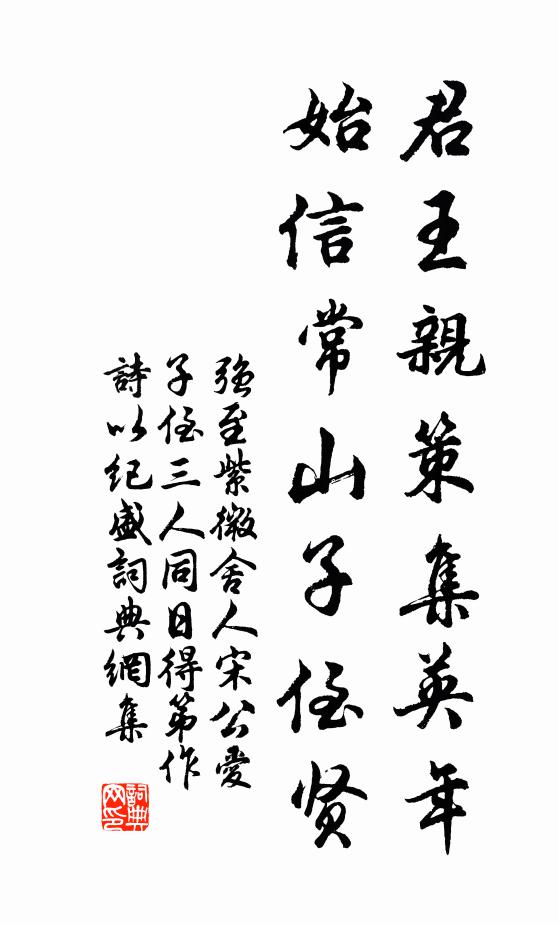 君王親策集英年
始信常山子侄贤
强至紫微舍人宋公愛
子侄三人同日得第作
詩以纪盛詞典網集
詞典网印